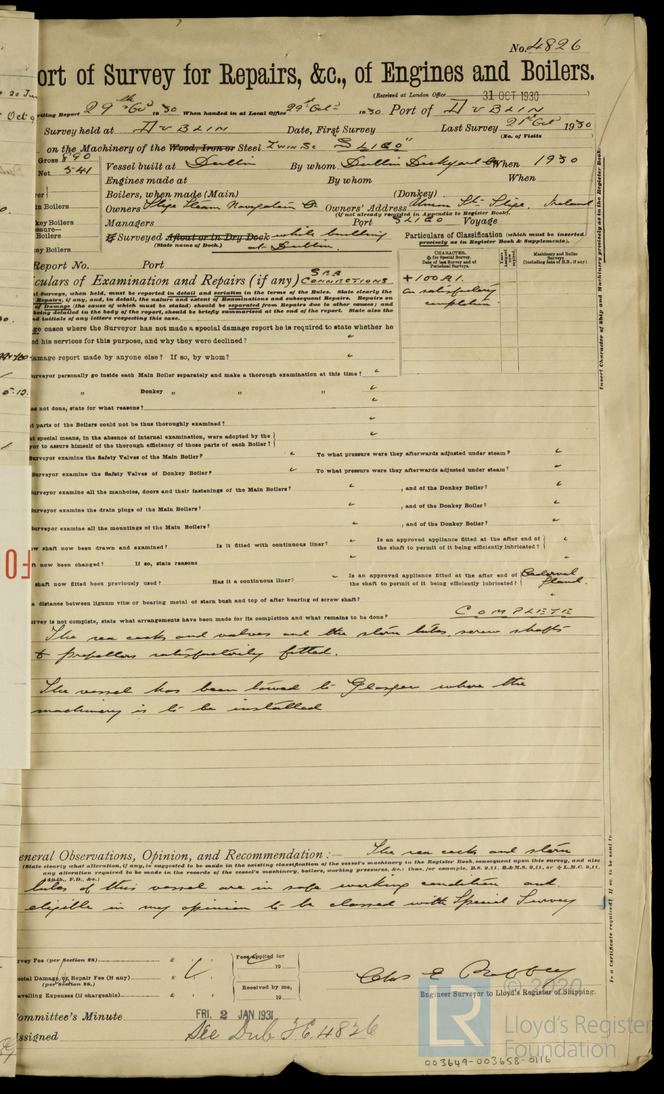 No. 4826
ort of Survey for Repairs, &c., of Engines and Boilers.
(Received at London Office 31 OCT 1930
riting Report 29th Oct 1930 When handed in at Local Office 29th Oct 1930 Port of DUBLIN
Survey held at DUBLIN Date, First Survey Last Survey 21st Oct 1930
(No. of Visits
on the Machinery of the Wood, Iron or Steel Twin Sc "SLIGO"
Gross 890
Net 341
Vessel built at Dublin By whom Dublin Dockyard Co When 1930
Engines made at By whom When
Boilers, when made (Main) (Donkey)
Owners Sligo Steam Navigation Co Owners' Address Sligo, Ireland
(If not already recorded in Appendix to Register Book).
Managers Port SLIGO Voyage
If Surveyed Afloat or in Dry Dock while building
(State name of Dock.) at Dublin.
Particulars of Classification (which must be inserted precisely as in Register Book & Supplements).
Report No. Port
CHARACTER,
for Special Survey.
Machinery and Boiler Surveys
+100A1.
on satisfactory
completion
culars of Examination and Repairs (if any) SEA CONNECTIONS
f Surveys, when held, must be reported in detail and seriatim in the terms of the Rules. State clearly the
Repairs, if any, and, in detail, the nature and extent of Examinations and subsequent Repairs. Repairs on
of Damage (the cause of which must be stated) should be separated from Repairs due to other causes; and
being detailed in the body of the report, should be briefly summarised at the end of the report. State also the
d initials of any letters respecting this case.
ge cases where the Surveyor has not made a special damage report he is required to state whether he
d his services for this purpose, and why they were declined?
amage report made by anyone else? If so, by whom?
urveyor personally go inside each Main Boiler separately and make a thorough examination at this time?
" Donkey " " "
as not done, state for what reasons?
t parts of the Boilers could not be thus thoroughly examined?
t special means, in the absence of internal examination, were adopted by the
yor to assure himself of the thorough efficiency of those parts of each Boiler?
Surveyor examine the Safety Valves of the Main Boiler? To what pressure were they afterwards adjusted under steam?
Surveyor examine the Safety Valves of Donkey Boiler? To what pressure were they afterwards adjusted under steam?
urveyor examine all the manholes, doors and their fastenings of the Main Boilers? , and of the Donkey Boiler?
urveyor examine the drain plugs of the Main Boilers? , and of the Donkey Boiler?
urveyor examine all the mountings of the Main Boilers? , and of the Donkey Boiler?
w shaft now been drawn and examined? Is it fitted with continuous liner? Is an approved appliance fitted at the after end of
the shaft to permit of it being efficiently lubricated?
ft now been changed? If so, state reasons
shaft now fitted been previously used? Has it a continuous liner? Is an approved appliance fitted at the after end of
the shaft to permit of it being efficiently lubricated? Gland.
e distance between lignum vitæ or bearing metal of stern bush and top of after bearing of screw shaft?
rvey is not complete, state what arrangements have been made for its completion and what remains to be done? COMPLETE
The sea cocks and valves and the stern tubes, screw shafts
& propellers satisfactorily fitted.
The vessel has been towed to Glasgow where the
machinery is to be installed
eneral Observations, Opinion, and Recommendation:— The sea cocks and stern
(State clearly what alteration, if any, is suggested to be made in the existing classification of the vessel's machinery in the Register Book, consequent upon this survey, and also
any alteration required to be made in the records of the vessel's machinery, boilers, working pressures, &c.; thus, for example, B.S. 9,11, B.&M.S. 9,11, or L.M.C. 9,11,
tubes of this vessel are in safe working condition and
eligible in my opinion to be classed with Special Survey
rvey Fee (per Section 28) £ : : Fees applied for
19
ecial Damage or Repair Fee (if any) £ : :
(per Section 28.)
avelling Expenses (if chargeable) £ : : Received by me,
19
Engineer Surveyor to Lloyd's Register of Shipping.
ommittee's Minute FRI. 2 JAN 1931
ssigned See Dub F.E. 4826
© 2020
LR Lloyd's Register
Foundation
003649-003658-0116
Insert Character of Ship and Machinery precisely as in the Register Book.